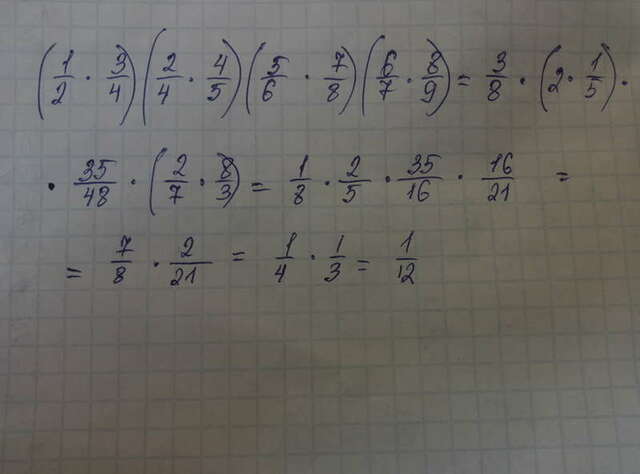 (1/2 · 3/4)(2/4 · 4/5)(5/6 · 7/8)(6/7 · 8/9) = 3/8 · (2 · 1/5) ·
· 35/48 · (2/7 · 8/3) = 1/8 · 2/5 · 35/16 · 16/21 =
= 7/8 · 2/21 = 1/4 · 1/3 = 1/12